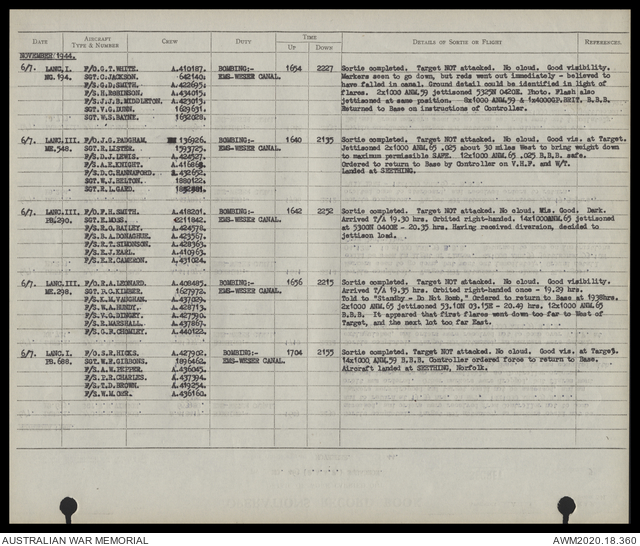 DATE AIRCRAFT TYPE & NUMBER CREW DUTY TIME UP DOWN DETAILS OF SORTIE OR FLIGHT REFERENCES.
NOVEMBER/1944.
6/7. LANC.I. F/O.G.T.WHITE. A.410187. BOMBING:- 1654 2227 Sortie completed. Target NOT attacked. No cloud. Good visibility.
NG.194. SGT.C.JACKSON. 642140. EMS-WESER CANAL. Markers seen to go down, but reds went out immediately - believed to
F/S.G.D.SMITH. A.422695. have fallen in canal. Ground detail could be identified in light of
F/S.H.ROBINSON. A.434015. flares. 2x1000 ANM.59 jettisoned 5325N 0420E. Photo. Flash also
F/S.J.J.B.MIDDLETON. A.423013. jettisoned at same position. 8x1000 ANM.59 & 1x4000GP.BRIT. B.B.B.
SGT.V.G.DUNN. 1629631. Returned to Base on instructions of Controller.
SGT.W.S.BAYNE. 1652028.
6/7. LANC.III. F/O.J.G.PAUGHAM. 136926. BOMBING:- 1640 2135 Sortie completed. Target NOT attacked. No cloud. Good vis. at Target.
ME.548. SGT.R.LISTER. 1593725. EMS-WESER CANAL. Jettisoned 2x1000 ANM.65 .025 about 30 miles West to bring weight down
F/S.D.J.LEWIS. A.424527. to maximum permissible SAFE. 12x1000 ANM.65 .025 B.B.B. safe.
F/S.A.E.KNIGHT. Ordered to return to Base by Controller on V.H.F. and W/T.
F/S.D.C.HANNAFORD. A.432652. Landed at SEETHING.
SGT.W.J.BELTON. 1880122.
SGT.R.L.GARD.
6/7. LANC.III. F/O.P.H.SMITH. A.418201. BOMBING:- 1642 2252 Sortie completed. Target NOT attacked. No cloud. Vis. Good. Dark.
PB.290. SGT.E.MOSS. 2211842. EMS-WESER CANAL. Arrived T/A 19.30 hrs. Orbited right-handed. 14x1000ANM.65 jettisoned
F/S.R.O.BAILEY. A.424578. at 5300N 0400E - 20.35 hrs. Having received diversion, decided to
F/S.B.A.DONAGHUE. A.423567. jettison load.
F/S.R.T.SIMONSON. A.428363.
F/S.E.J.EARL. A.410963.
F/S.K.R.CAMERON. A.431024.
6/7. LANC.III. F/O.R.A.LEONARD. A.408485. BOMBING:- 1656 2215 Sortie completed. Target NOT attacked. No cloud. Good visibility.
ME.298. SGT.D.G.KIMBER. 1627972. EMS-WESER CANAL. Arrived T/A 19.35 hrs. Orbited right-handed once - 19.29 hrs.
F/S.K.M.VAUGHAN. A.437029. Told to "Standby - Do Not Bomb." Ordered to return to Base at 1938hrs.
F/S.W.A.HUNDY. A.428713. 2x1000 ANM.65 jettisoned 53.10N 03.15E - 20.49 hrs. 12x1000 ANM.65
F/S.V.G.DINGEY. A.427390. B.B.B. It appeared that first flares went down too far to West of
F/S.R.MARSHALL. A.437867. Target, and the next lot too far East.
F/S.G.R.CHOMLEY. A.440122.
6/7. LANC.I. F/O.S.R.HICKS. A.427902. BOMBING:- 1704 2155 Sortie completed. Target NOT attacked. No cloud. Good vis. at Target.
PB.688. SGT.W.H.GIBBONS. 1896462. EMS-WESER CANAL. 14x1000 ANM.59 B.B.B. Controller ordered force to return to Base.
F/S.A.W.PEPPER. A.436045. Aircraft landed at SEETHING, Norfolk.
F/S.P.R.CHARLES. A.437394.
F/S.T.D.BROWN. A.419254.
F/S.W.M.ORR. A.436160.
AUSTRALIAN WAR MEMORIAL AWM2020.18.360